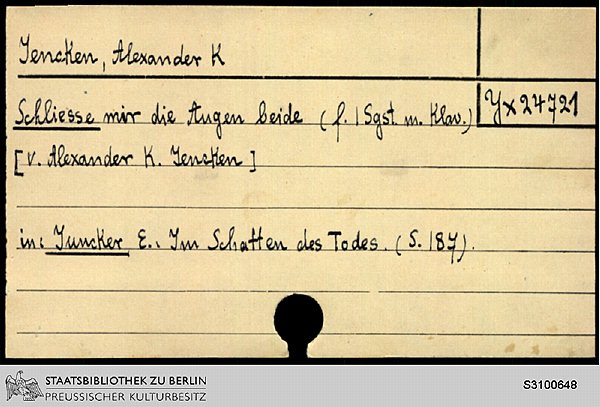 Jencken, Alexander K
Schliesse mir die Augen beide (f. 1 Sgst. m. Klav.)
Yx 24721
[v. Alexander K. Jencken]
in: Juncker E.: Im Schatten des Todes. (S. 187).
STAATSBIBLIOTHEK ZU BERLIN
PREUSSISCHER KULTURBESITZ
S3100648